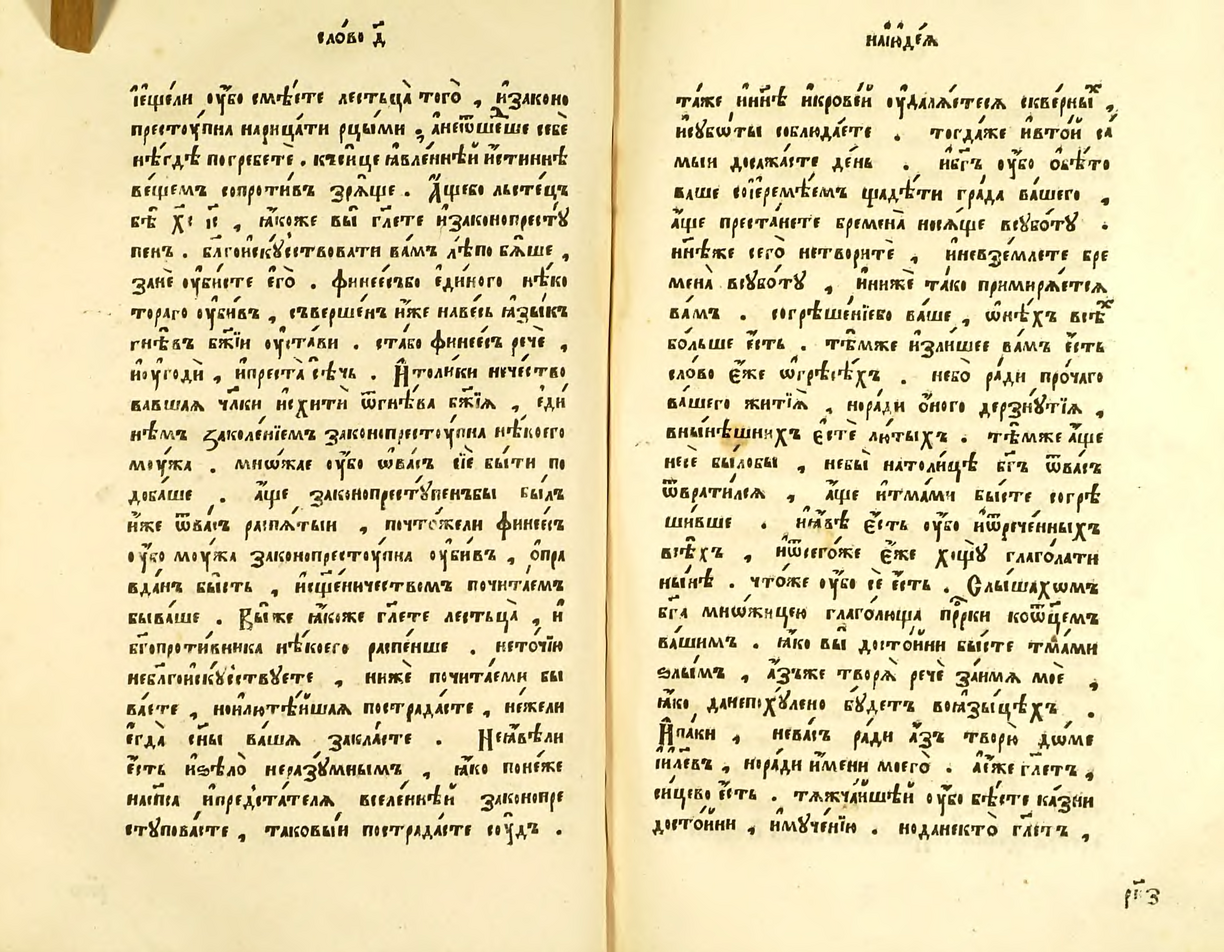 сло́во д҃
і҆ещели оу҆бо смѣ́сте лестьца̀ того̀ , и҆законо
престоу́пна нарица́ти рцы́ми , а҆неѿше́ше себѐ
нѣ́гдѣ погребе́те . къси́це ꙗ҆вле́ннѣй и҆́стиннѣ
ве́щемъ сопроти́въ зрѧ́ще . А҆́щебо льсте́цъ
бѣ̀ хс҃ і҆с҃ , ꙗ҆́коже вы̀ гл҃ете и҆законопрестꙋ́
пенъ . бл҃гои҆скꙋ́ствовати ва́мъ лѣ́по бѧ́ше ,
занѐ оу҆би́сте е҆го̀ . финее́събо е҆ди́ного нѣ́ко
тораго оу҆би́въ , съверше́нъ и҆́же наве́сь ꙗ҆зы́къ
гнѣ́въ бж҃їи оу҆ста́ви . ста́бо финее́съ речѐ ,
и҆оу҆годѝ , и҆преста̀ сѣ́чь . И҆толи́ки нече́ство
вавшаѧ чл҃ки и҆схитѝ ѿгнѣ́ва бж҃їѧ , е҆ди
нѣ́мъ заколе́нїемъ законопрестоу́пна нѣ́коего
моу́жа . мно́жае оу҆́бо ѡ҆ва́съ сїѐ бы́ти по
доба́ше . а҆́ще законопрестꙋ́пенъбы бы́лъ
и҆́же ѿва́съ распѧ́тыи , почто́жели финее́съ
оу҆́бо моу́жа законопрестоу́пна оу҆би́въ , о҆пра
вда́нъ бы́сть , и҆сщ҃е́ничествомъ почита́емъ
быва́ше . Вы́же ꙗ҆́коже гл҃ете лестьца̀ , и҆
бг҃опроти́вника нѣ́коего распе́нше . нето́чїю
небл҃гои҆скꙋ́ствꙋете , ниже почита́еми бы
ва́ете , нои҆лютѣ́йшаѧ пострада́сте , не́жели
е҆гда̀ сн҃ы ва́шѧ закла́сте . Неꙗ҆вѣ́ли
е҆́сть и҆ѕѣло̀ неразꙋ́мнымъ , ꙗ҆́ко поне́же
насп҃са и҆предста́телѧ вселе́ннѣй законопре
стꙋпова́сте , таковы́и пострада́сте соу́дъ .
наі҆ꙋде́ѧ
та́же и҆нн҃ѣ и҆кровѐй оу҆далѧ́етесѧ скве́рныⷯ ,
и҆сꙋбѡ́ты соблюда́ете . тогда́же и҆вто́й са́
мыи досажа́сте де́нь . и҆бг҃ъ оу҆́бо обѣ́то
ваше со і҆ереме́емъ щадѣ́ти гра́да ва́шего ,
а҆́ще преста́нете бремена̀ носѧ́ще всꙋбо́тꙋ .
нн҃ѣже сего̀ нетворитѐ , и҆невзе́млете бре
мена̀ всꙋбо́тꙋ , и҆ниже та́ко примирѧ́етсѧ
ва́мъ . согрѣше́нїебо ва́ше , ѡ҆нѣ́хъ всѣⷯ
бо́льше е҆́сть . тѣ́мже и҆зли́шее ва́мъ е҆́сть
сло́во е҆́же ѡ҆грѣсѣ́хъ . не́бо ра́ди про́чаго
ва́шего житїѧ̀ , нора́ди о҆́ного дерзнꙋ́тїѧ ,
внынѣ́шнихъ е҆стѐ лю́тыхъ . тѣ́мже а҆́ще
несѐ бы́лобы , небы̀ натоли́цѣ бг҃ъ ѿва́съ
ѿврати́лсѧ , а҆́ще и҆тма́ми бы́сте согрѣ
ши́вше . и҆ꙗ҆́вѣ е҆́сть оу҆́бо и҆ѿрече́нныхъ
всѣ́хъ , и҆ѿсего́же е҆́же хощꙋ̀ глаго́лати
ны́нѣ . что́же оу҆́бо сѐ е҆́сть . Слы́шахомъ
бг҃а мно́жицею глаго́люща прⷪ҇рки коѿце́мъ
ва́шимъ . ꙗ҆́ко вы̀ досто́йни бы́сте тма́ми
ѕлы́мъ , а҆́зъже творѧ̀ речѐ за́имѧ моѐ ,
ꙗ҆́ко данепохꙋ́лено бꙋ́детъ воꙗ҆зы́цѣхъ .
И҆па́ки , нева́съ ра́ди а҆́зъ творю̀ до́ме
і҆и҃левъ , нора́ди и҆́мени моего̀ . а҆е҆́же гл҃етъ ,
си́цево е҆́сть . тѧжча́йшей оу҆́бо бѣ́сте ка́зни
досто́йни , и҆мꙋче́нїю . нодане́кто гл҃етъ ,
рг҃з